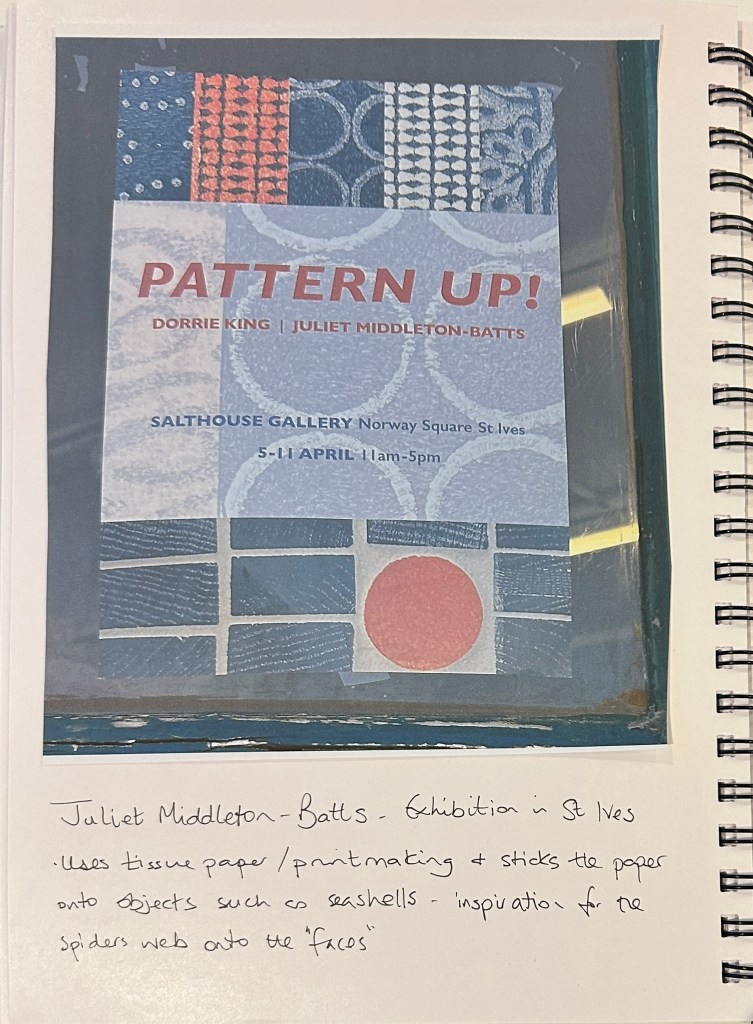 PATTERN UP!
DORRIE KING | JULIET MIDDLETON-BATTS
SALTHOUSE GALLERY Norway Square St Ives
5-11 APRIL 11am-5pm
Juliet Middleton-Batts - Exhibition in St Ives
·Uses tissue paper/printmaking & sticks the paper
onto objects such as seashells - inspiration for the
spiders web onto the "faces"